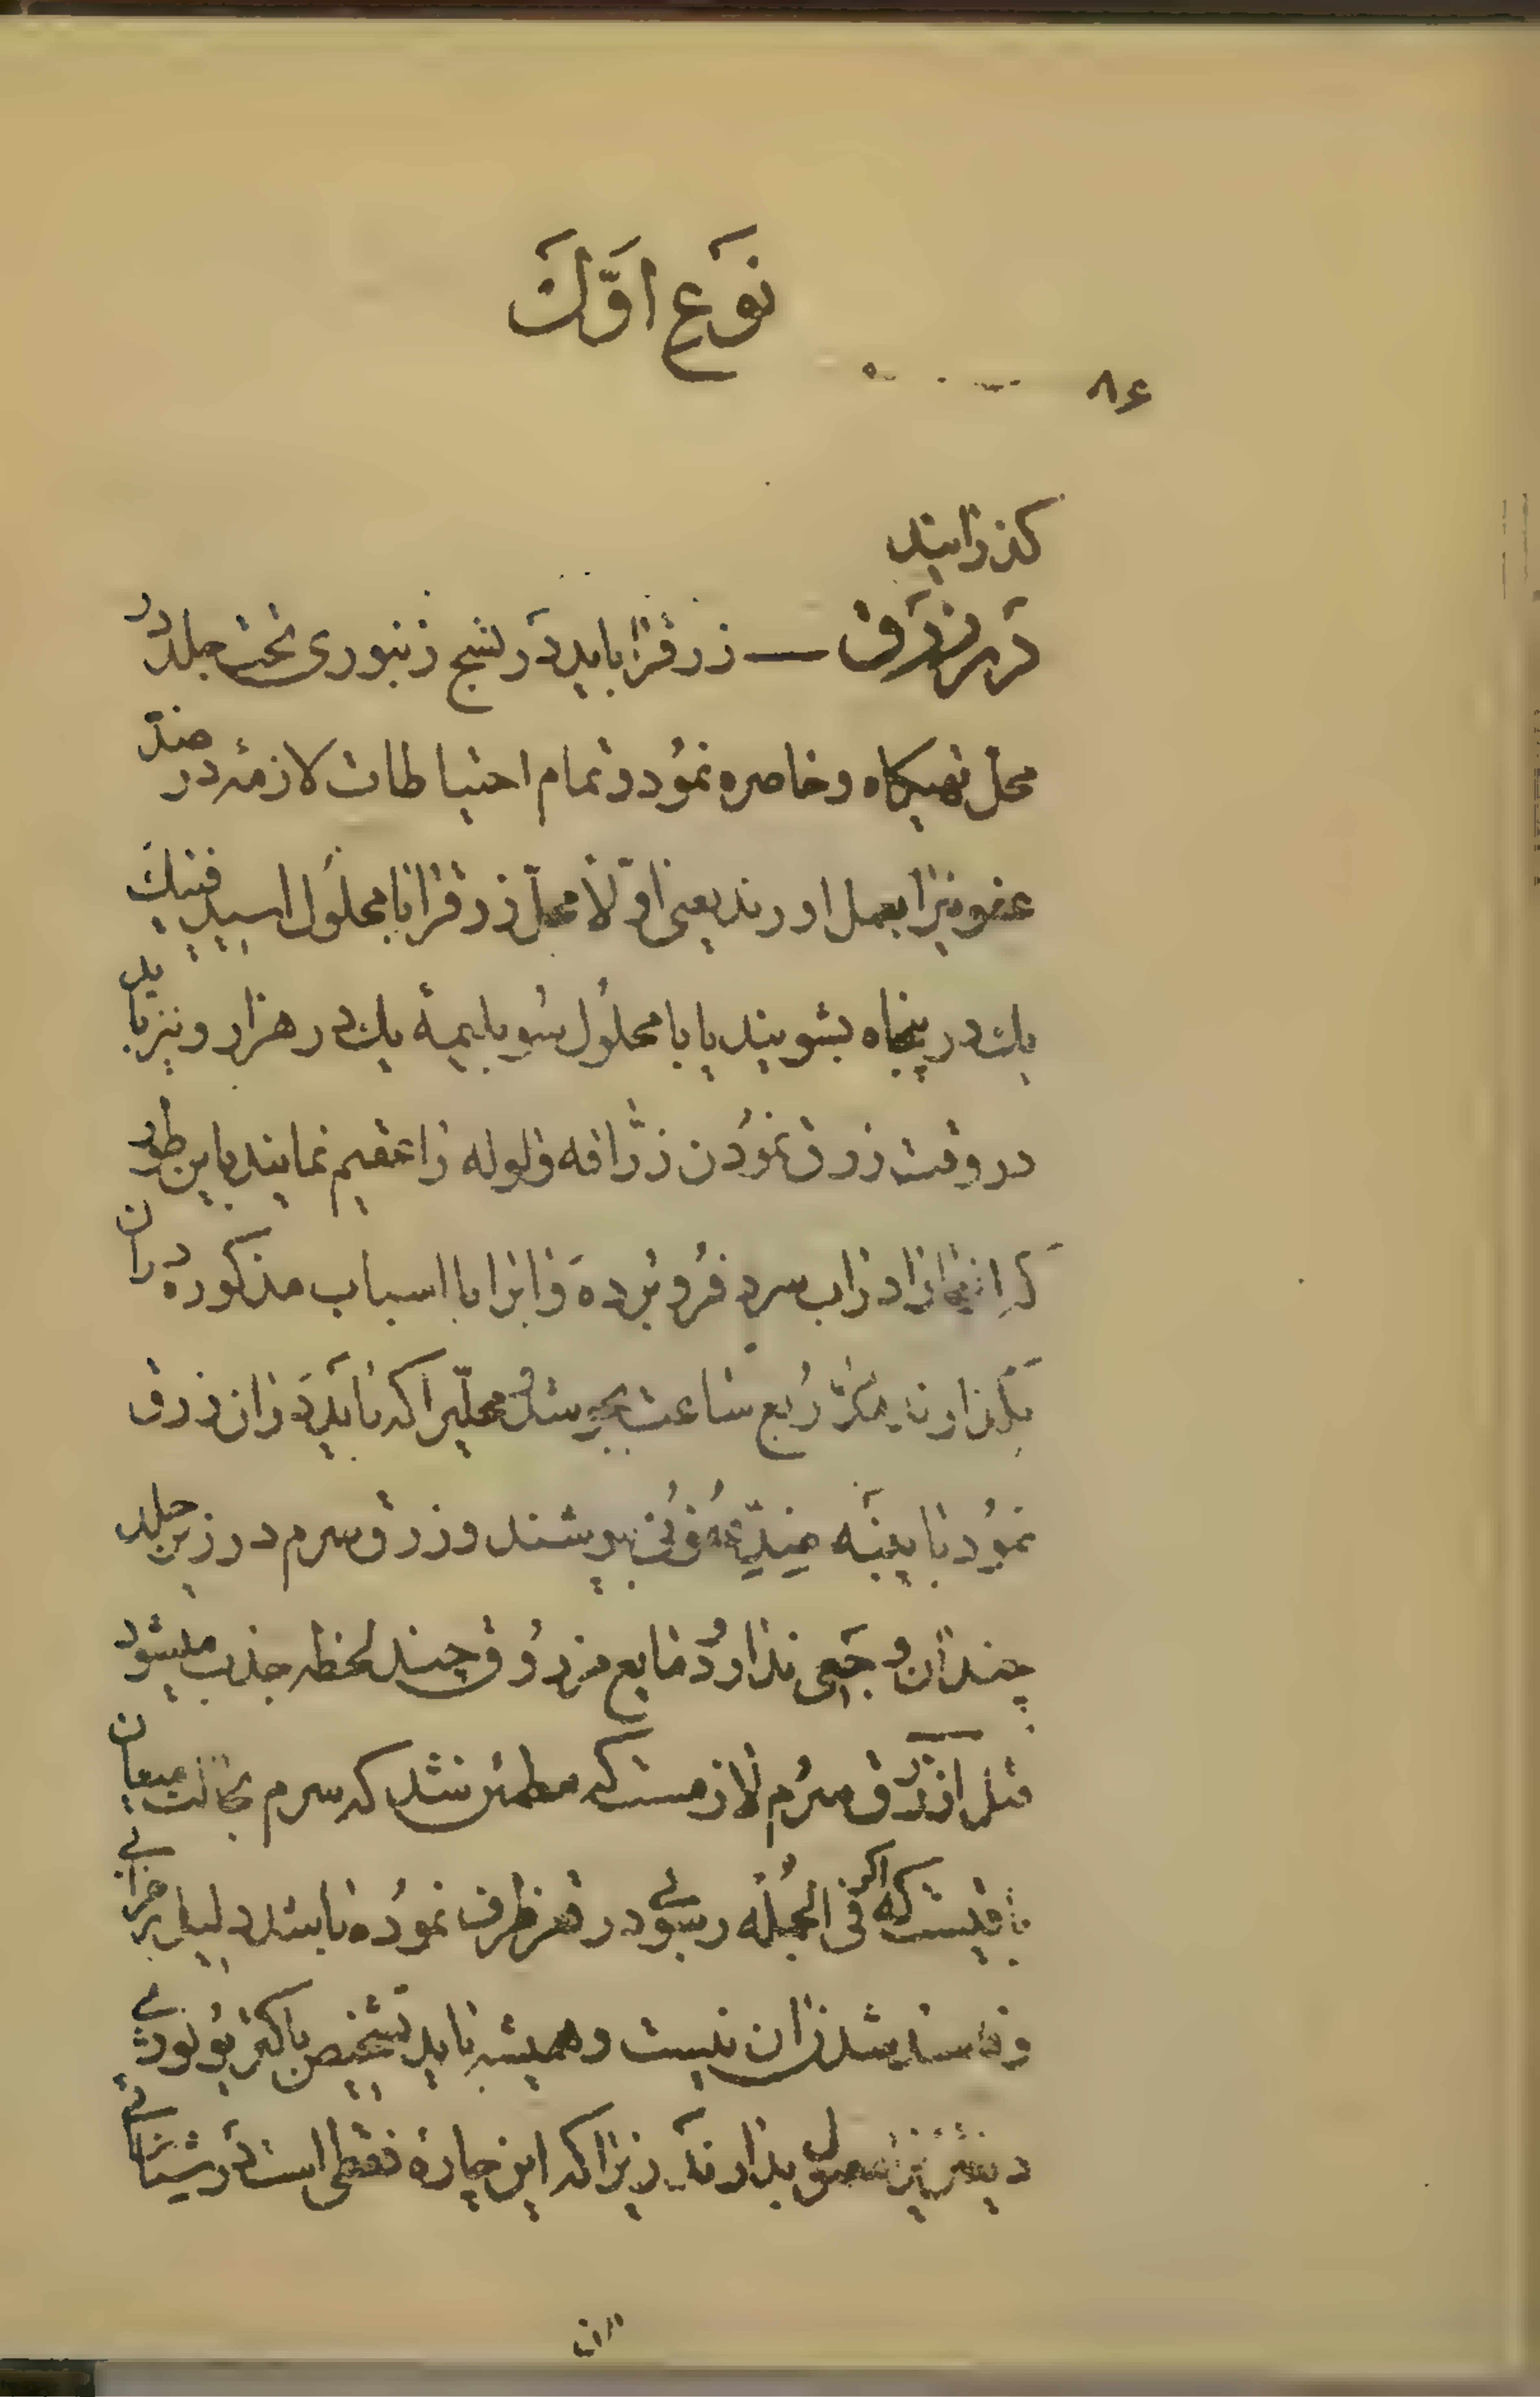 نوع اوّل
۸۶
کذرانید
در زرق — زرقرا باید در نسج زنبوری تحت جلد در
محل تهیکاه و خاصره نمود و تمام احتیاطات لازمه در ضدّ
عفونیرا بعمل اورند یعنی اوّلا محلّ زرقرا با محلول اسید فنیک
یک در پنجاه بشویند یا با محلول سوبلیمه یک در هزار و نیز باید
در وقت زرق نمودن زرّاقه و لوله را عقیم نمایند باین طور
که انهارا در اب سرد فرو برده و انرا با اسباب مذکوره در ان
بکذارند یک ربع ساعت بجوشد و محلّیرا که باید در ان زرق
نمود با پنبه ضدّ عفونی بپوشند و زرق سرم در زیر جلد
چندان وجعی ندارد و مایع مزروق چند لحظه جذب میشود
قبل از زرق سرم لازمست که مطمئن شد که سرم بحالت میعان
باقیست که اکر فی الجمله رسوبی در قعر ظرف نموده باشد دلیل بر خرابی
و فاسد شدن ان نیست و همیشه باید تشخیص باکتریولوژی
دیفتری را معمول بدارند زیرا که این چاره قطعی است در شناسائی
ان